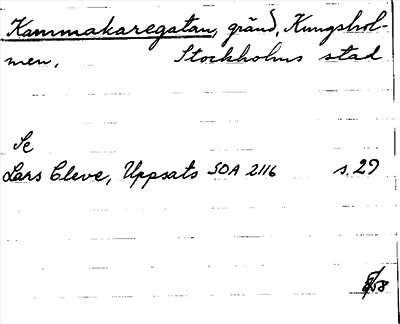 Kammakaregatan, gränd, Kungshol-
men, Stockholms stad
Se
Lars Cleve, Uppsats SOA 2116 s. 29